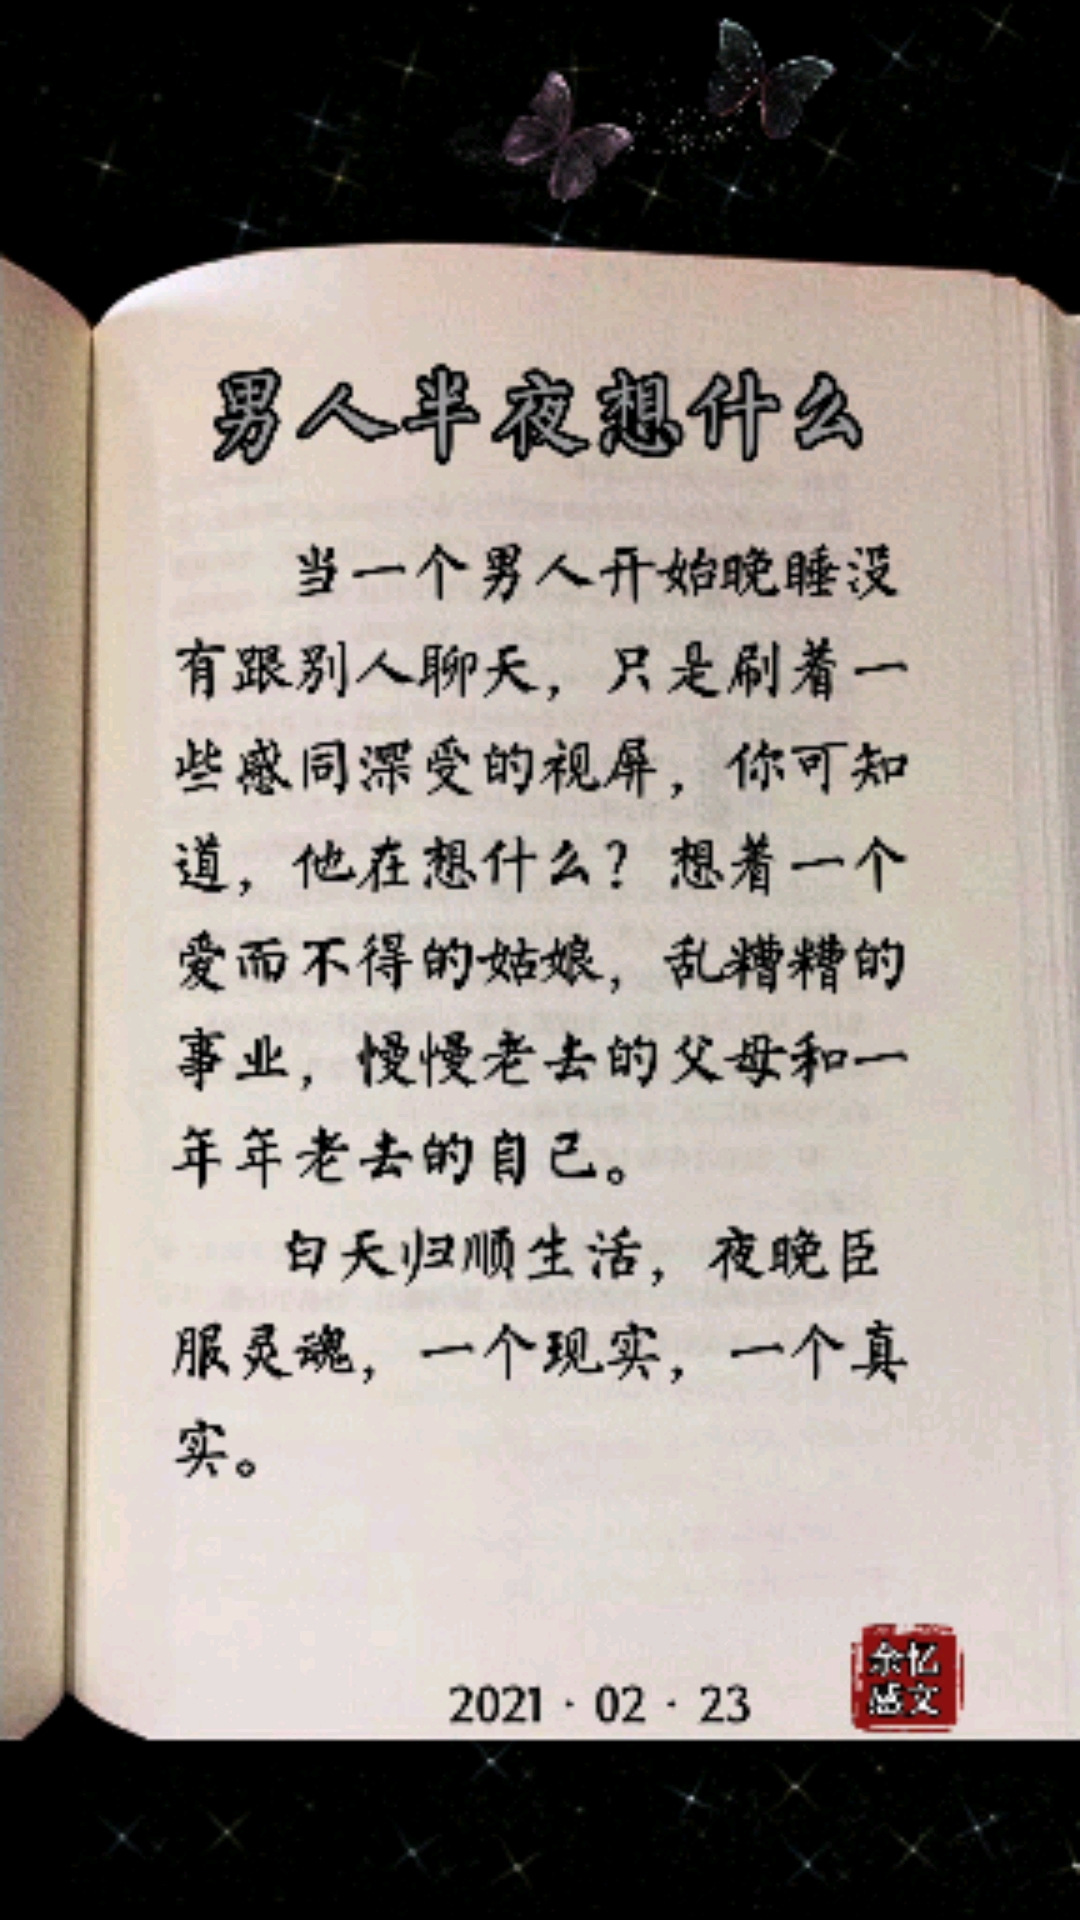 男人半夜想什么
当一个男人开始晚睡没
有跟别人聊天，只是刷着一
些感同深受的视屏，你可知
道，他在想什么？想着一个
爱而不得的姑娘，乱糟糟的
事业，慢慢老去的父母和一
年年老去的自己。
白天归顺生活，夜晚臣
服灵魂，一个现实，一个真
实。
2021·02·23
余忆
感文